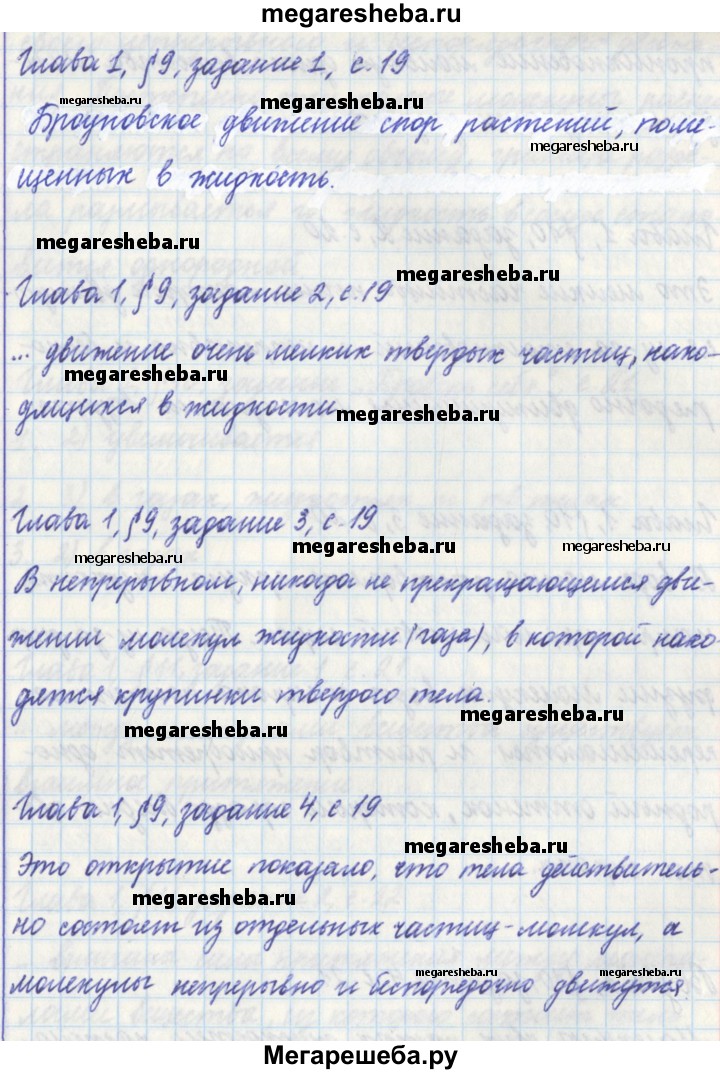 megaresheba.ru
Глава 1, §9, задание 1, с. 19
megaresheba.ru megaresheba.ru
Броуновское движение спор растений, поме-
megaresheba.ru
щенных в жидкость.
megaresheba.ru
megaresheba.ru
Глава 1, §9, задание 2, с. 19
... движение очень мелких твердых частиц, нахо-
megaresheba.ru
дящихся в жидкости.
megaresheba.ru
Глава 1, §9, задание 3, с. 19
megaresheba.ru megaresheba.ru megaresheba.ru
В непрерывном, никогда не прекращающемся дви-
жении молекул жидкости (газа), в которой нахо-
дятся крупинки твердого тела.
megaresheba.ru
megaresheba.ru
Глава 1, §9, задание 4, с. 19
megaresheba.ru
Это открытие показало, что тела действитель-
megaresheba.ru
но состоят из отдельных частиц-молкул, а
megaresheba.ru megaresheba.ru
молекулы непрерывно и беспорядочно движутся.
megaresheba.ru
Мегарешеба.ру